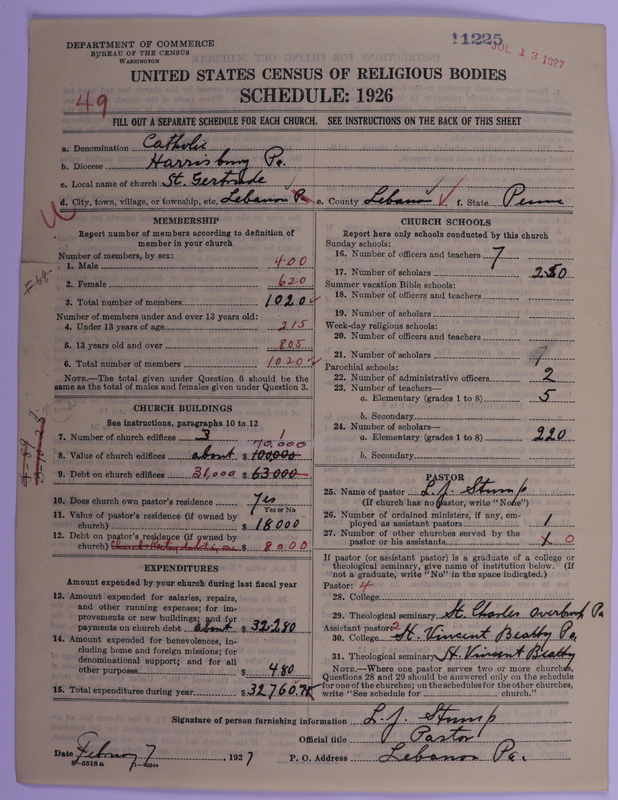 DEPARTMENT OF COMMERCE
BUREAU OF THE CENSUS
WASHINGTON
11225
JUL 13 1927
UNITED STATES CENSUS OF RELIGIOUS BODIES
SCHEDULE: 1926
49
FILL OUT A SEPARATE SCHEDULE FOR EACH CHURCH. SEE INSTRUCTIONS ON THE BACK OF THIS SHEET
a. Denomination Catholic
b. Diocese Harrisburg Pa.
c. Local name of church St. Gertrude
d. City, town, village, or township, etc. Lebanon Pa e. County Lebanon f. State Penna
MEMBERSHIP
Report number of members according to definition of member in your church
Number of members, by sex:
1. Male 400
2. Female 620
3. Total number of members 1020
Number of members under and over 13 years old:
4. Under 13 years of age 215
5. 13 years old and over 805
6. Total number of members 1020
NOTE.—The total given under Question 6 should be the
same as the total of males and females given under Question 3.
CHURCH BUILDINGS
See instructions, paragraphs 10 to 12
7. Number of church edifices 3 1
70,000
8. Value of church edifices about $ 100,000
9. Debt on church edifices 31,000 $ 63000
10. Does church own pastor's residence Yes
Yes or No
11. Value of pastor's residence (if owned by
church) $ 18000
12. Debt on pastor's residence (if owned by
church) $ 8000
EXPENDITURES
Amount expended by your church during last fiscal year
13. Amount expended for salaries, repairs,
and other running expenses; for im-
provements or new buildings; and for
payments on church debt about $ 32,280
14. Amount expended for benevolences, in-
cluding home and foreign missions; for
denominational support; and for all
other purposes $ 480
15. Total expenditures during year $ 32760.
CHURCH SCHOOLS
Report here only schools conducted by this church
Sunday schools:
16. Number of officers and teachers 7
17. Number of scholars 250
Summer vacation Bible schools:
18. Number of officers and teachers
19. Number of scholars
Week-day religious schools:
20. Number of officers and teachers
21. Number of scholars
Parochial schools:
22. Number of administrative officers 2
23. Number of teachers—
a. Elementary (grades 1 to 8) 5
b. Secondary
24. Number of scholars—
a. Elementary (grades 1 to 8) 220
b. Secondary
PASTOR
25. Name of pastor L. J. Stump
(If church has no pastor, write "None")
26. Number of ordained ministers, if any, em-
ployed as assistant pastors 1
27. Number of other churches served by the
pastor or his assistants 1 0
If pastor (or assistant pastor) is a graduate of a college or
theological seminary, give name of institution below. (If
not a graduate, write "No" in the space indicated.)
Pastor: 4
28. College
29. Theological seminary St. Charles Overbrook Pa
Assistant pastor: 2
30. College St. Vincent Beatty Pa.
31. Theological seminary St. Vincent Beatty
NOTE.—Where one pastor serves two or more churches,
Questions 28 and 29 should be answered only on the schedule
for one of the churches; on the schedules for the other churches,
write "See schedule for church."
Signature of person furnishing information L. J. Stump
Official title Pastor
Date February 7, 1927 P. O. Address Lebanon Pa.
8—5518a